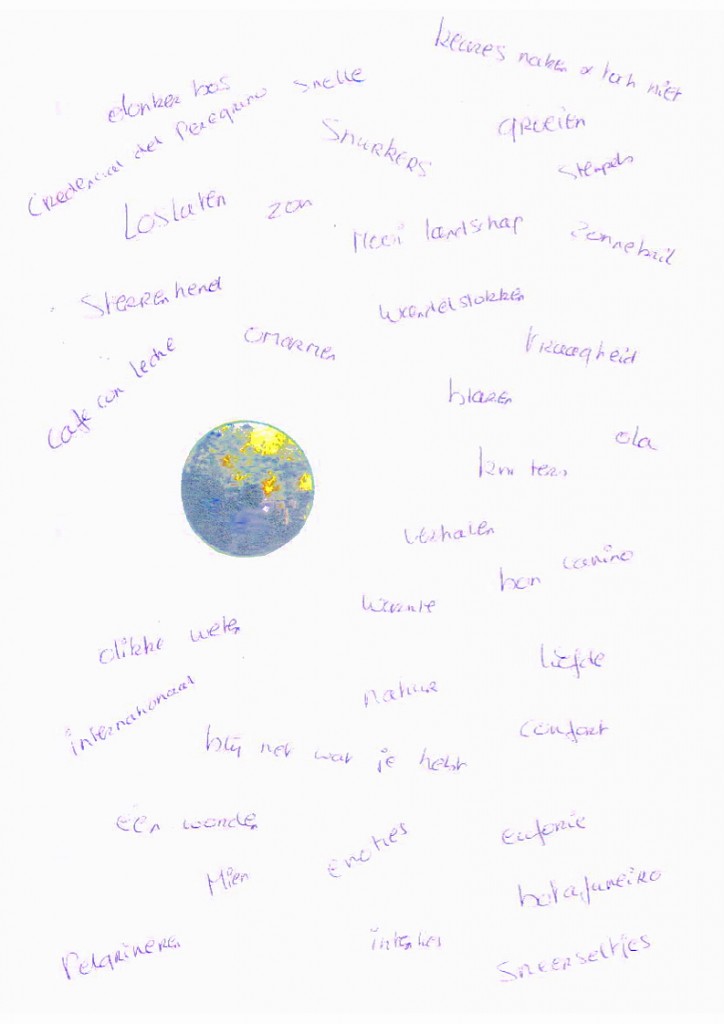 keuzes maken & toch niet
donker bos
snelle
Credencial del Peregrino
Snurkers
groeien
stempels
Loslaten
zon
Mooi landschap
zonnebril
Sterrenhemel
wandelstokken
omarmen
traagheid
cafe con leche
blaren
ola
verhalen
bon camino
warmte
dikke weten
liefde
internationaal
natuur
comfort
blij met wat je hebt
één worden
emoties
euforie
Mien
botafumeiro
Pelgrimeren
intenties
Smeerseltjes